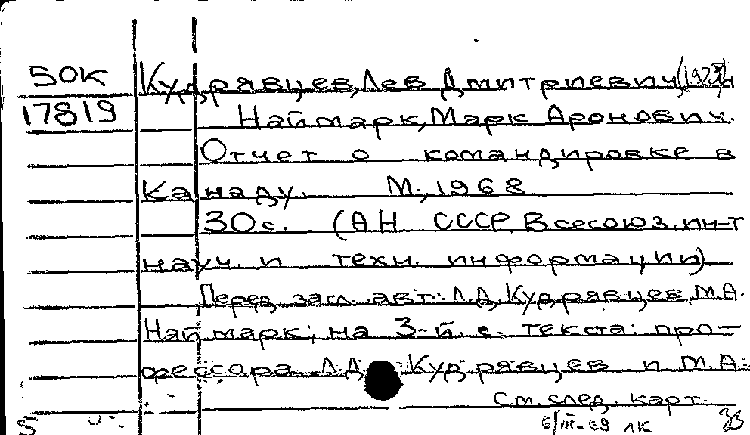 50К Кудрявцев, Лев Дмитриевич, (1923) и
17819 Наймарк, Марк Аронович.
Отчет о командировке в
Канаду. М., 1968
30с. (АН СССР. Всесоюз. ин-т
науч. и техн. информации)
Перед загл. авт.: Л.Д. Кудрявцев, М.А.
Наймарк; на 3-й с. текста: про-
фессора Л.Д. Кудрявцев и М.А.
См. след. карт.
6/III-69 ЛК